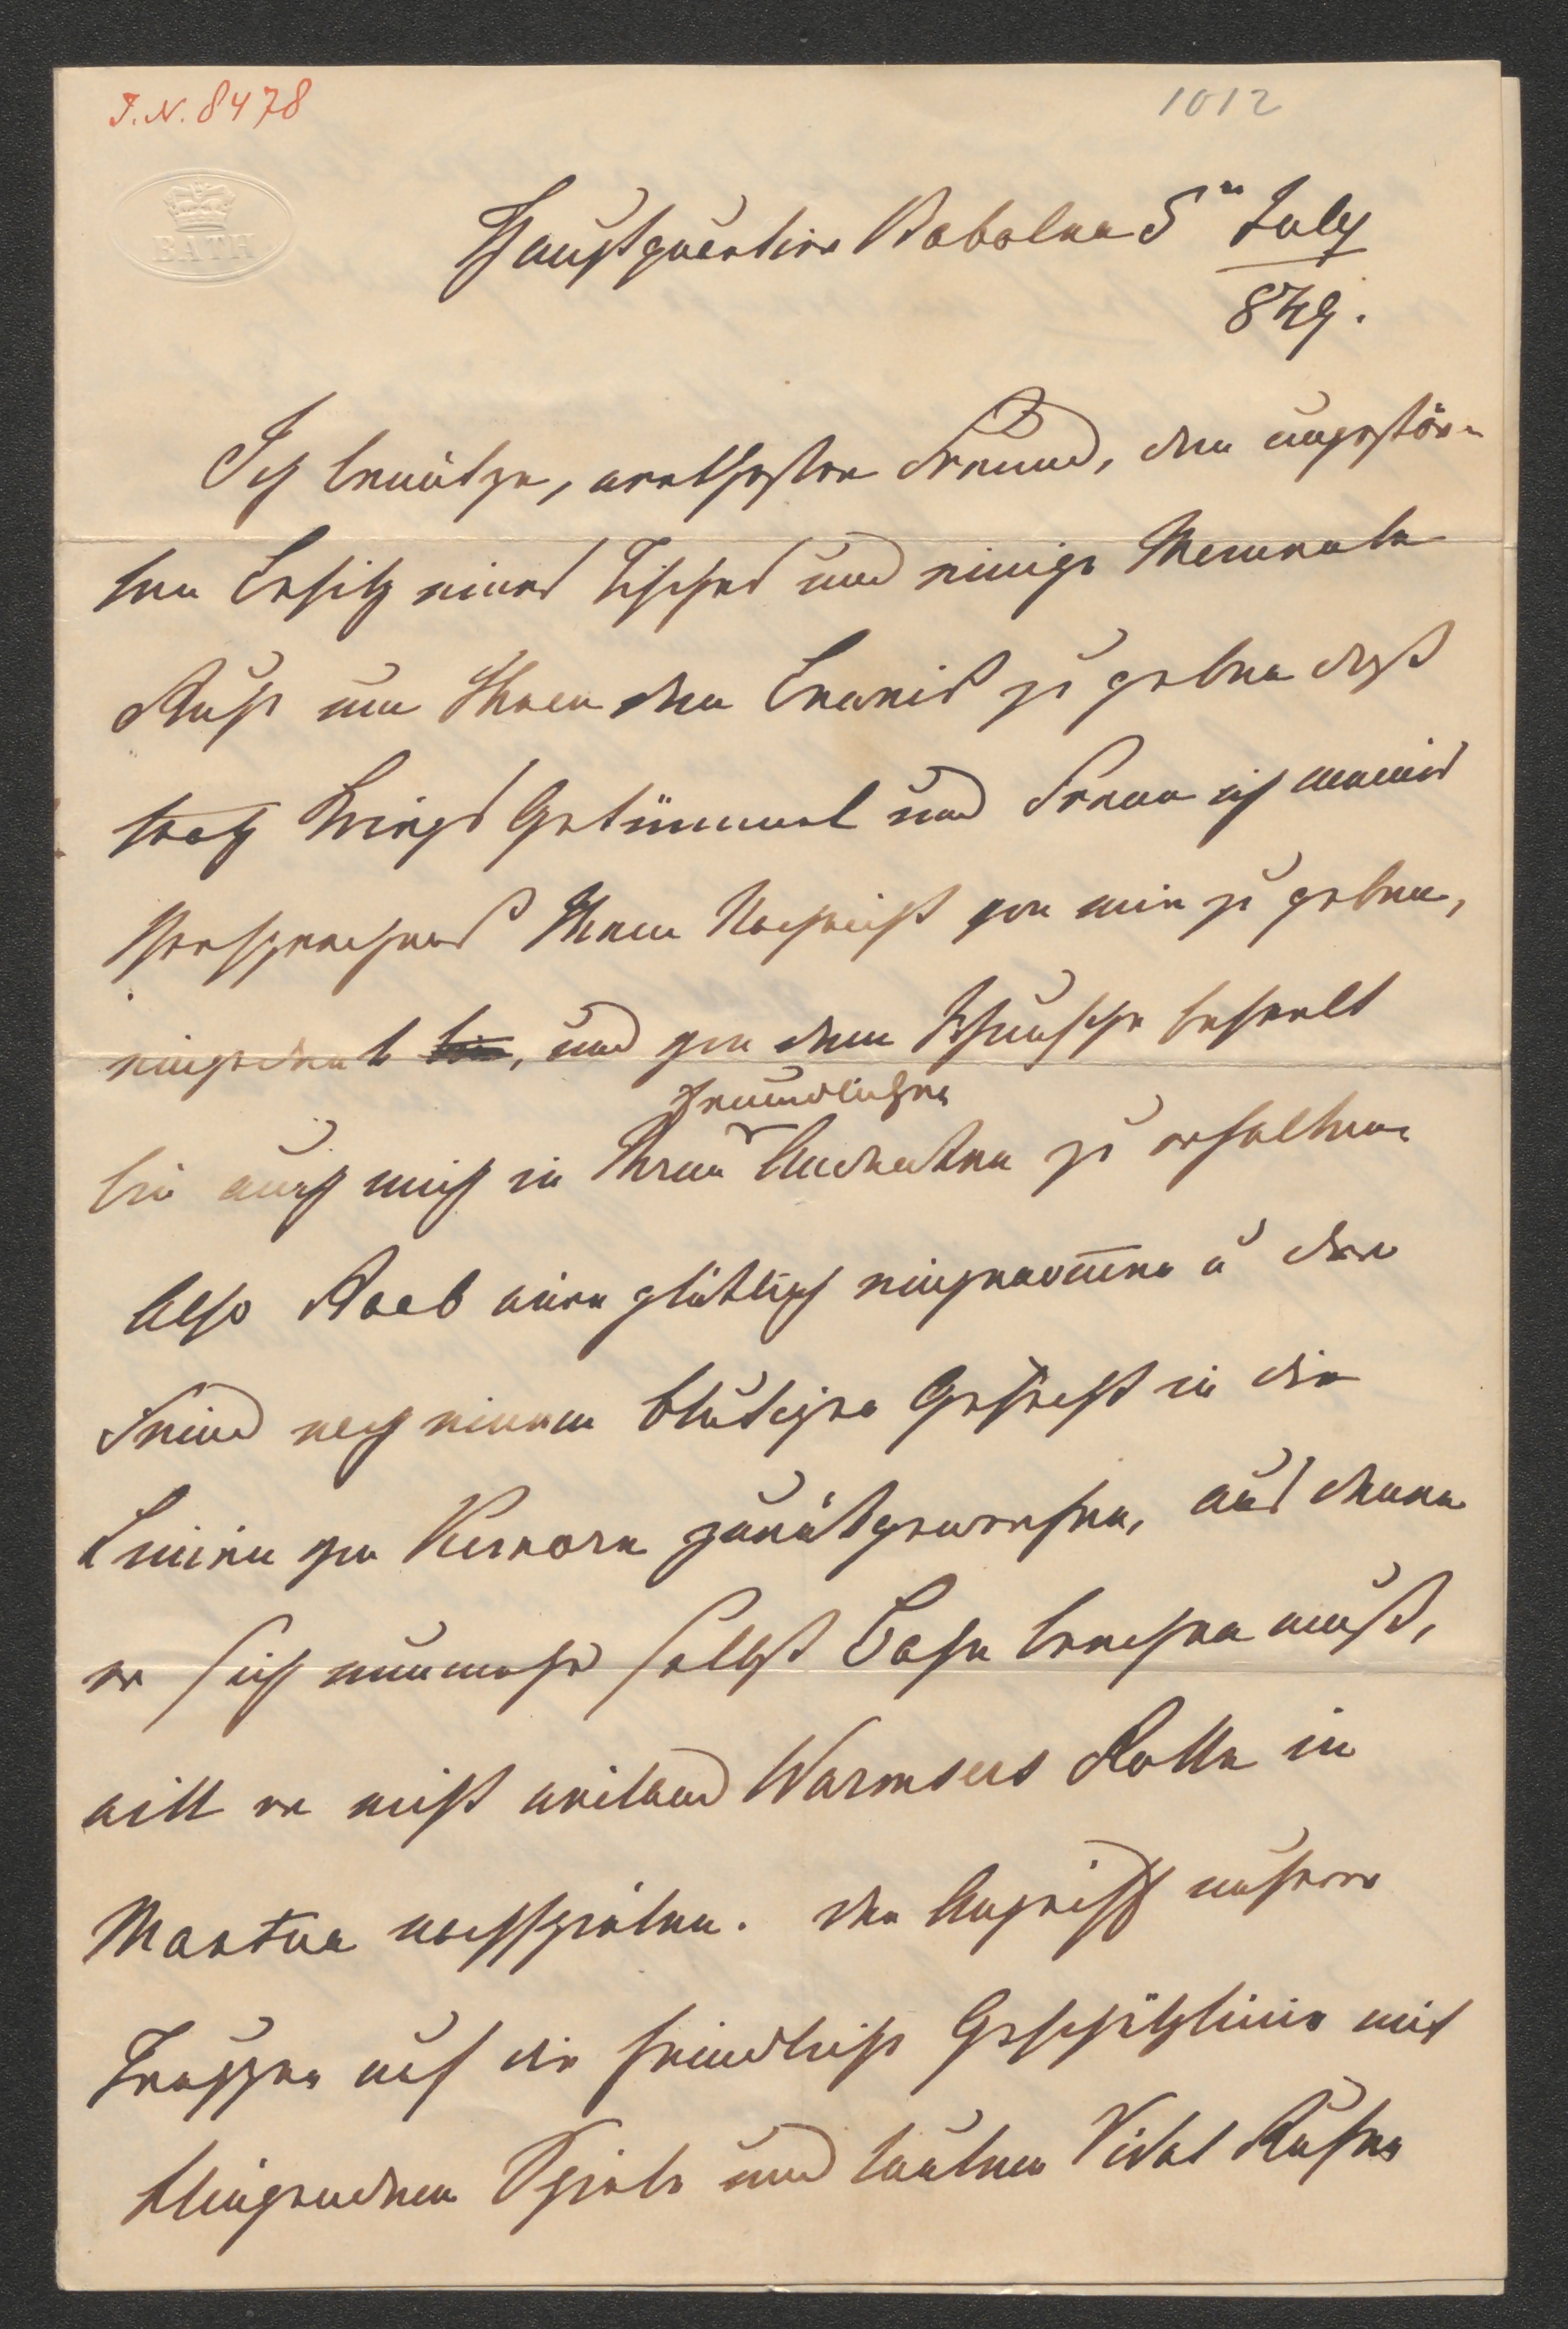 I.N. 8478
1012
BATH
Hauptquartier Babolna 5n July
849.
Ich benütze, werthester Freund, den ungestör-
ten Besitz eines Tisches und einige Momente
Ruhe um Ihnen den Beweis zu geben daß
trotz Kriegs Getümmel und Ferne ich meines
Versprechens Ihnen Nachricht von mir zu geben,
eingedenk bin, und von dem Wunsche beseelt
freundlichen
bin auch mich in Ihrem Andenken zu erhalten
Also Raab wäre glücklich eingenommen u der
Feind nach einem blutigen Gefecht in die
Linien von Komorn zurückgeworfen, aus denen
er sich nunmehr selbst Bahn brechen muß,
will er nicht weiland Wurmsers Rolle in
Mantua nachspielen. Der Angriff unserer
Truppen auf die feindliche Geschützlinie mit
klingendem Spiele und lautem Vivat Rufen